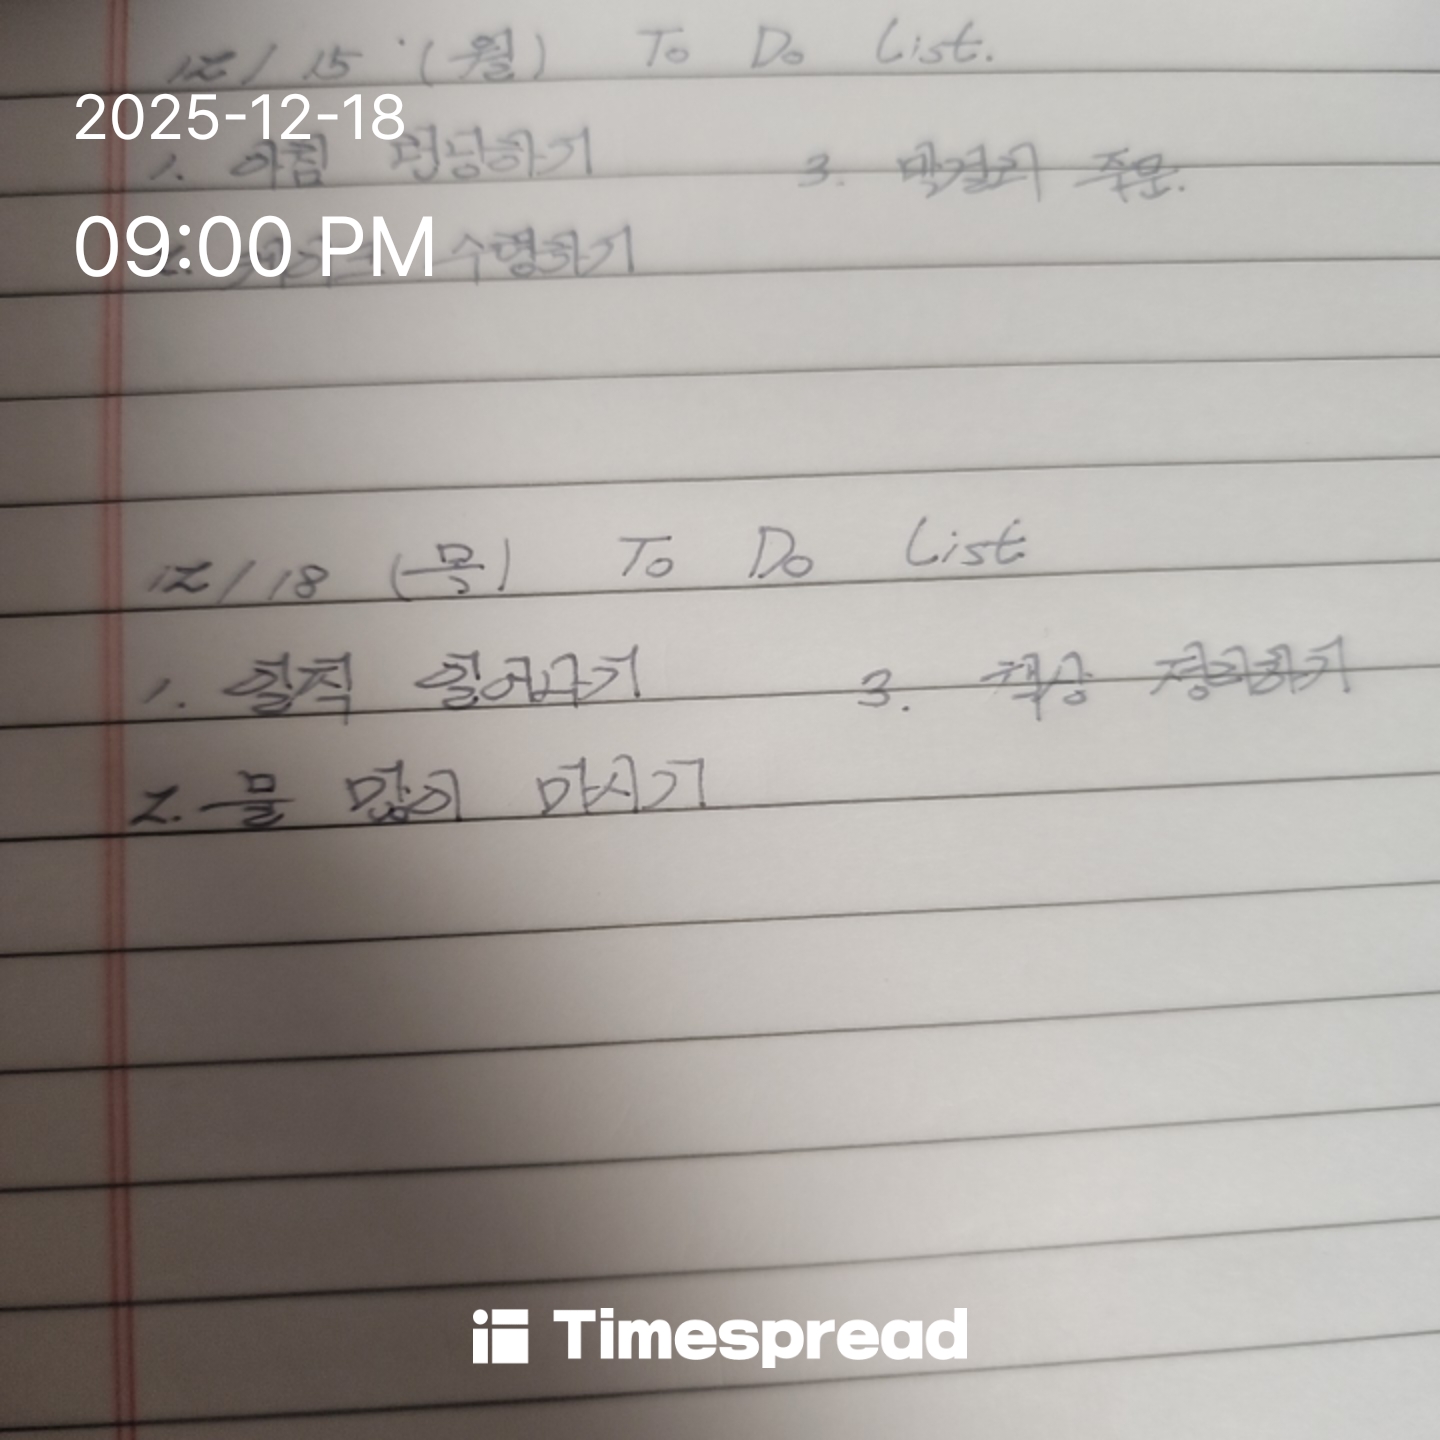 12/15 (월) To Do List.
2025-12-18
1. 아침 런닝하기 3. 막걸리 주문.
09:00 PM
2. 수령하기
12/18 (목) To Do List
1. 일찍 일어나기 3. 책상 정리하기
2. 물 많이 마시기
Timespread